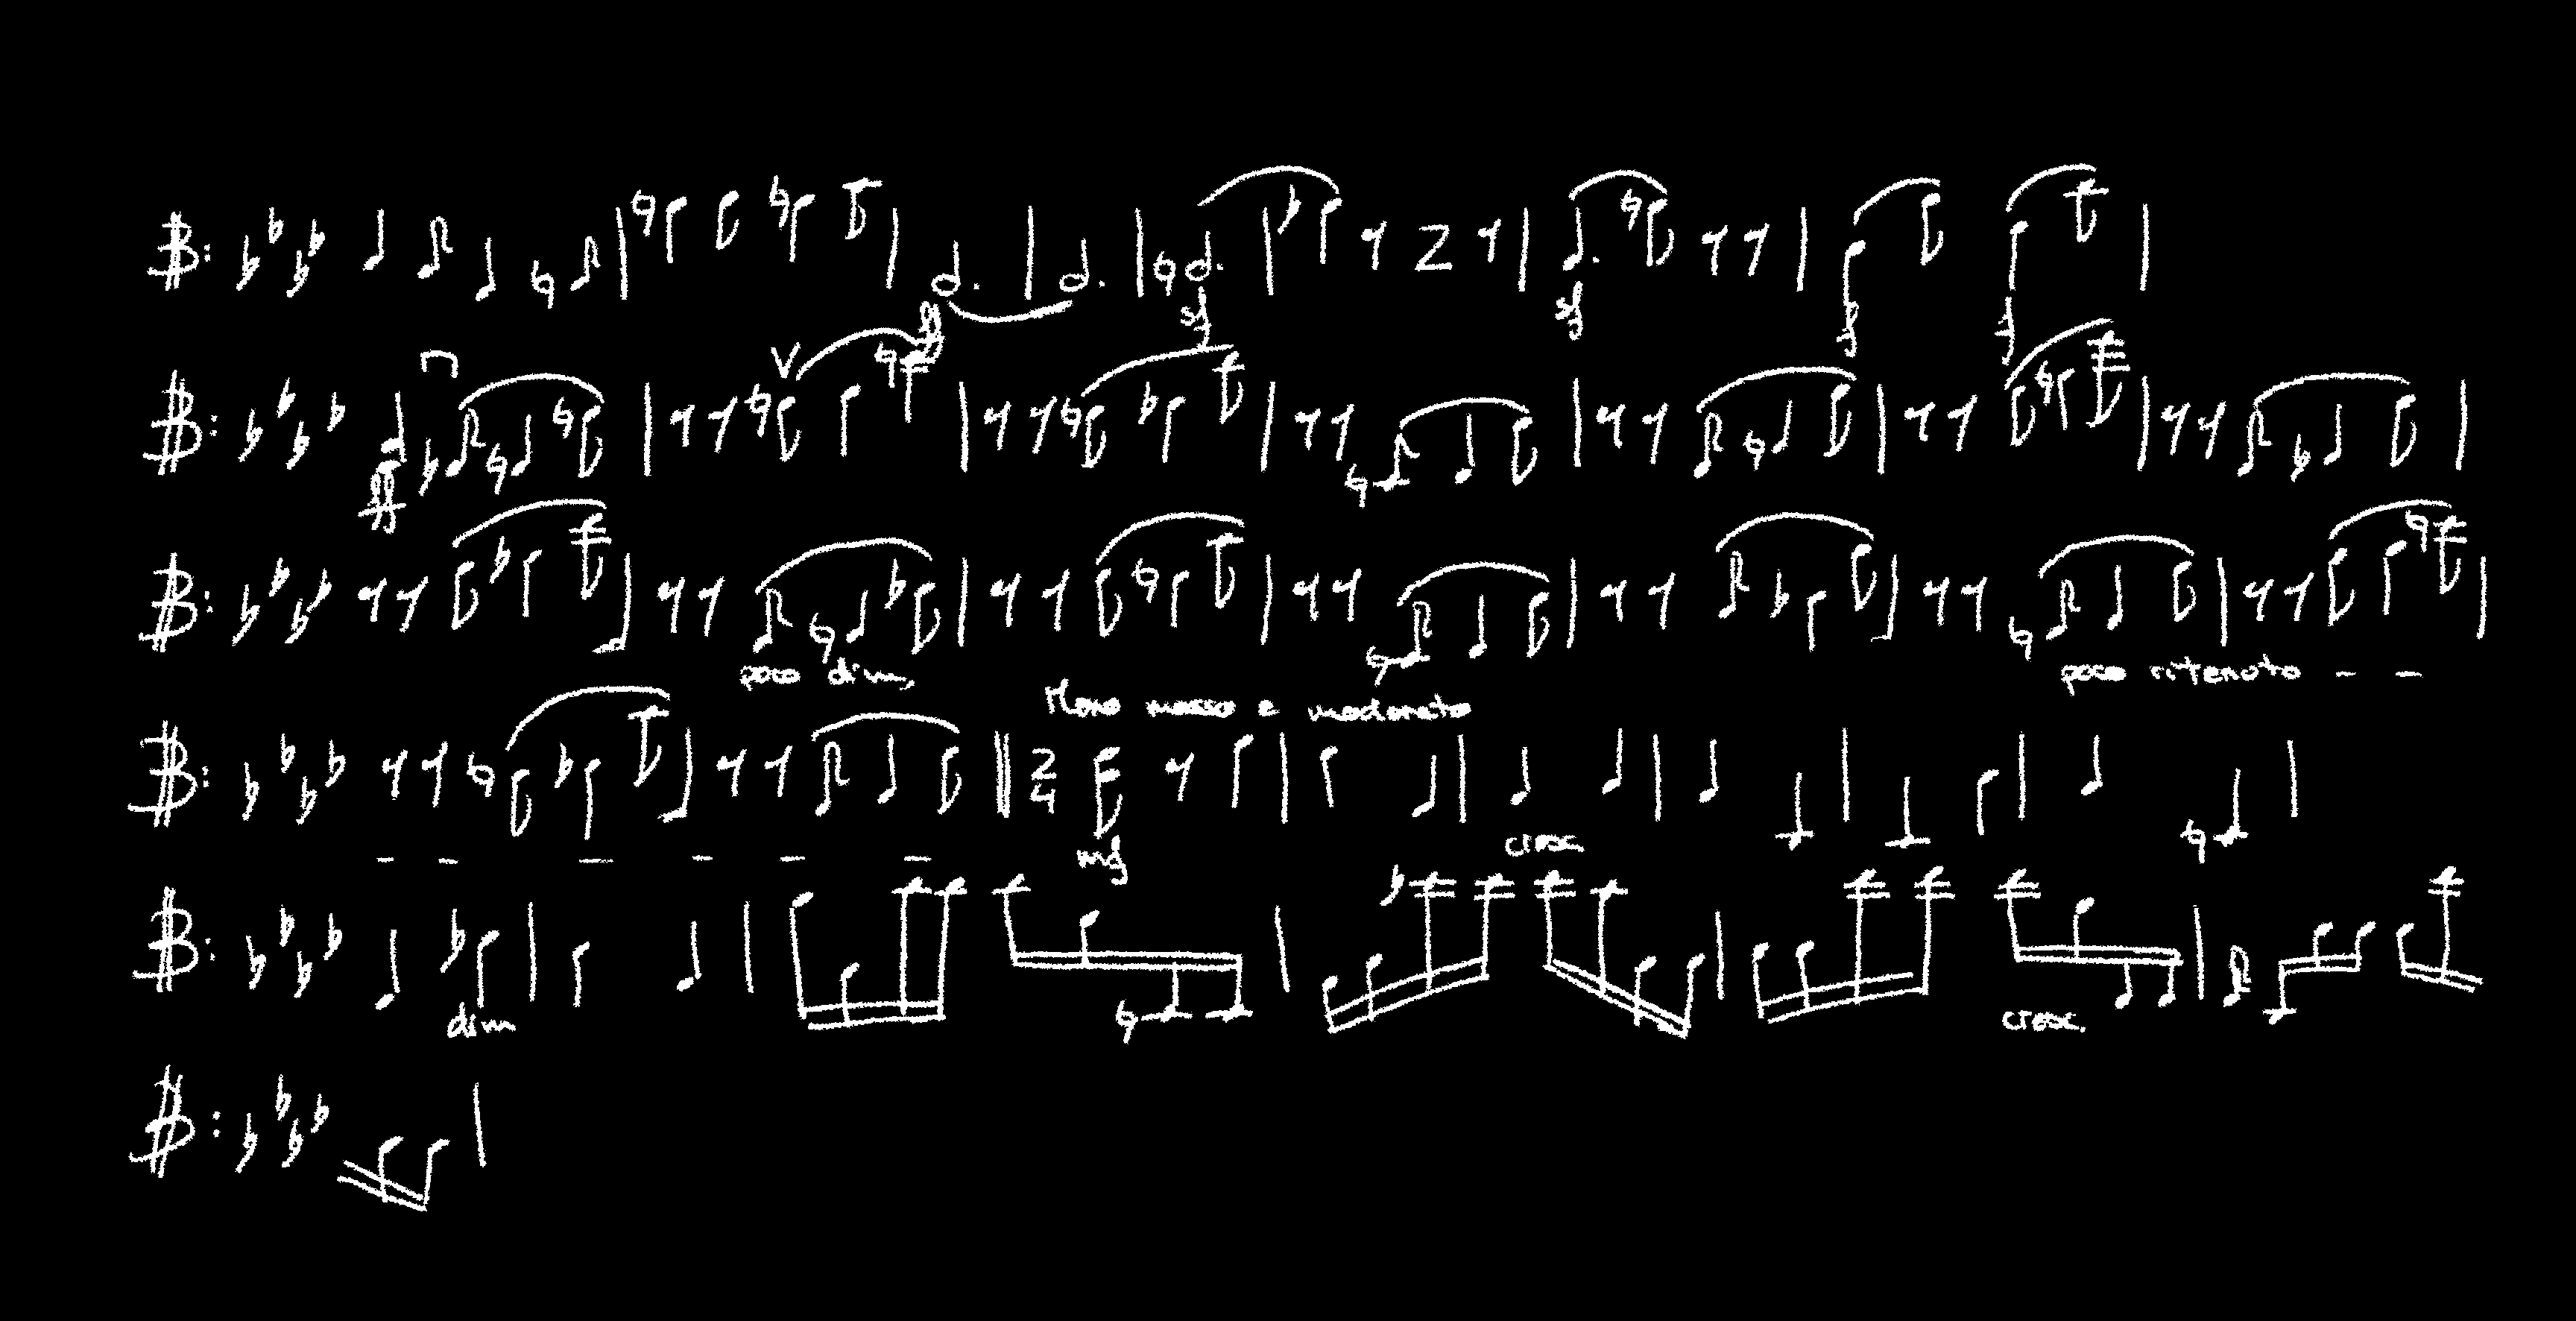 ff sf sf f f
ff
poco dim. poco ritenuto - -
Meno mosso e moderato
2
4
- - - - - - mf cresc
dim cresc.